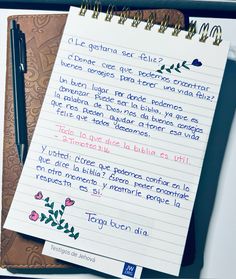 ¿Le gustaría ser feliz?
¿Donde cree que podemos encontrar
buenos consejos para tener una vida feliz?
Un buen lugar por donde podemos
comenzar. Puede ser la biblia, ya que es
la palabra de Dios, nos da buenos consejos
que nos pueden ayudar a tener esa vida
feliz que todos deseamos.
Todo lo que dice la biblia es util.
- 2 Timoteo 3:16
Y usted: ¿Cree que podamos confiar en lo
que dice la biblia? Espero poder encontrarle
en otro momento, y mostrarle porque la
respuesta es SI.
Tenga buen día.
Testigos de Jehová
JW